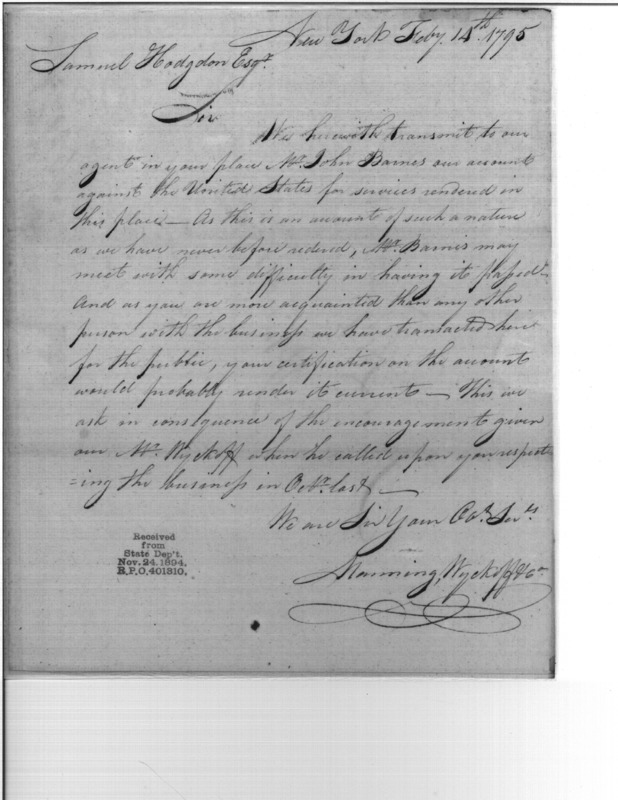 New York Feby. 14th. 1795
Samuel Hodgdon Esqr.
Sir
We herewith transmit to our
agent in your place Mr. John Barnes our account
against the United States for services rendered in
this place — As this is an account of such a nature
as we have never before redered, Mr. Barnes may
meet with some difficulty in having it passed —
And as you are more acquainted than any other
person with the business we have transacted here
for the public, your certification on the account
would probably render it current — This we
ask in consequence of the encouragement given
our Mr. Wyckoff when he called upon you respect
=ing the business in Octr. last —
We are Sir Your Obt. Servts.
Manning, Wyckoff & Co.
Received
from
State Dep't.
Nov. 24, 1894.
R.P.O. 401310.